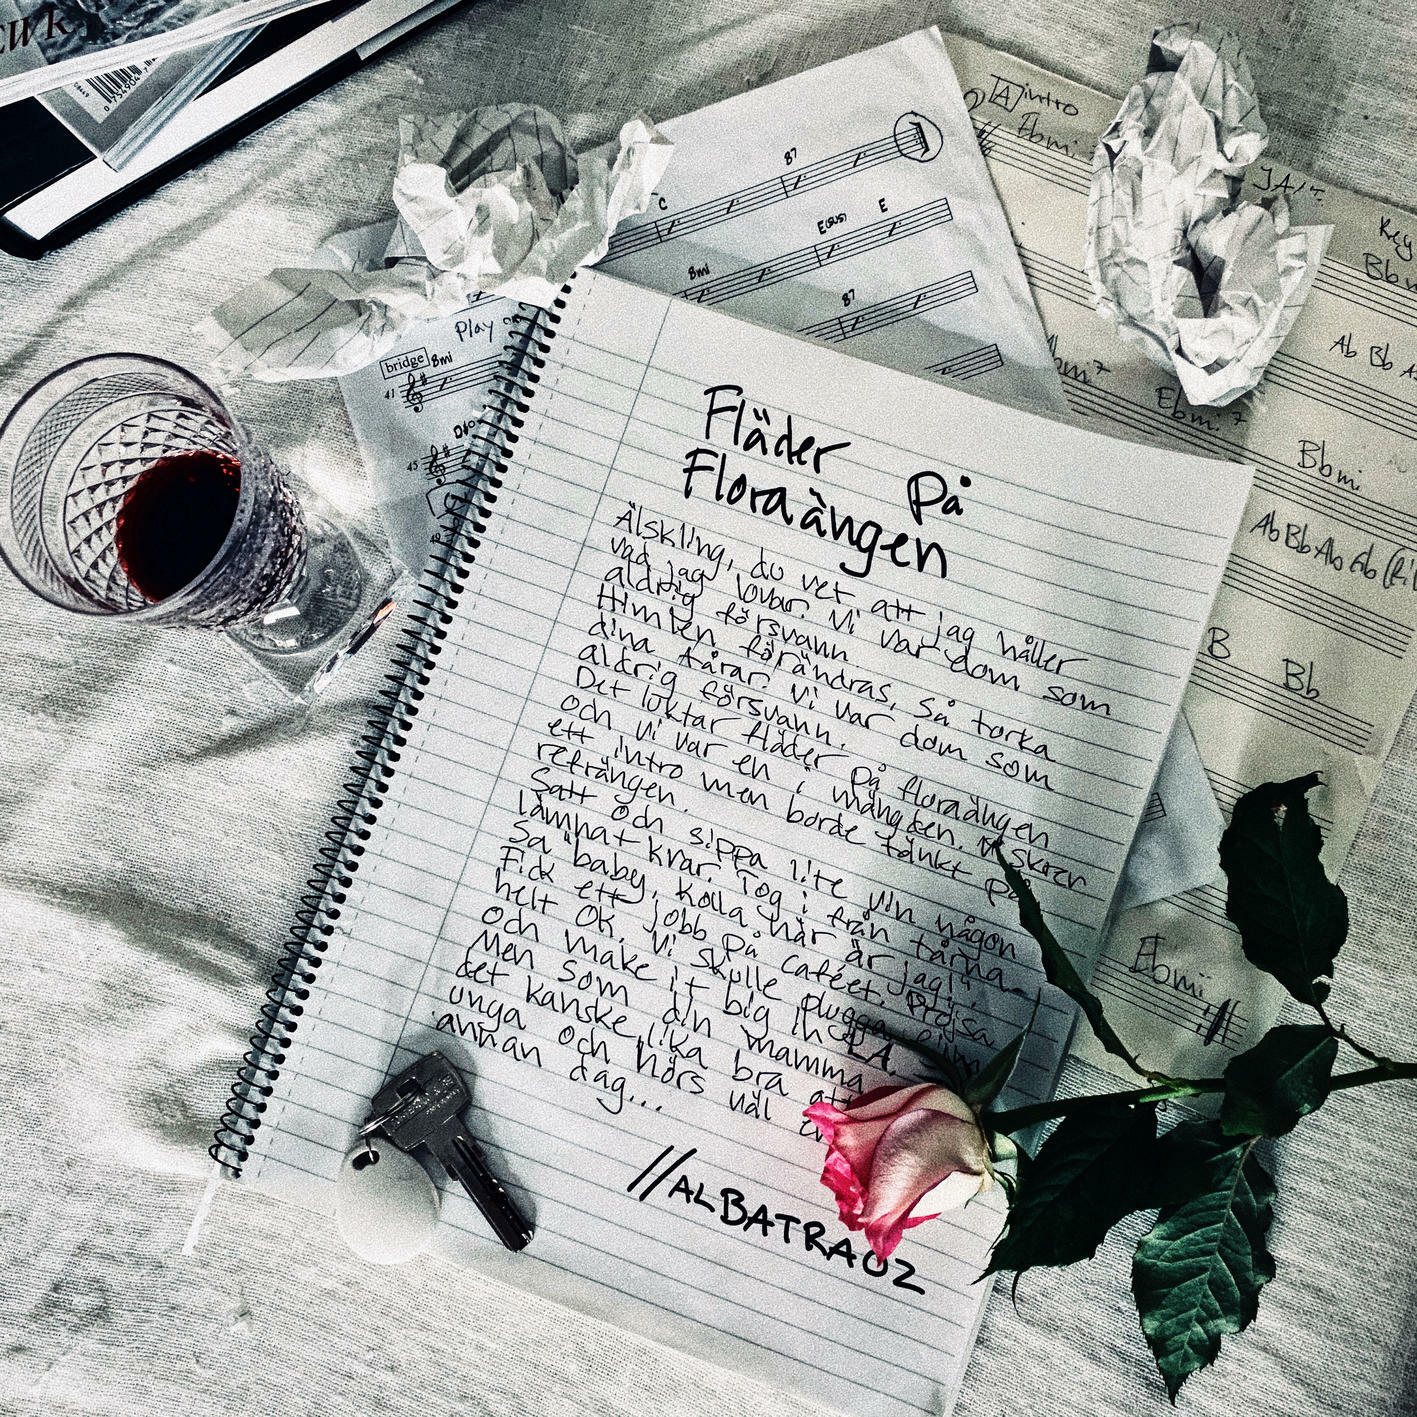 0 754904
[A] intro
Ebmi
JA!
Key
Bb
B7
C
E(sus) E
Bmi
B7
Play
bridge Bmi
41
45
Ebmi7
Ab Bb
Bbmi
Ab Bb Ab Gb
B Bb
Ebmi
Fläder På
Floraängen
Älskling, du vet att jag håller
vad jag lovar. Vi var dom som
aldrig försvann.
Himlen förändras, så torka
dina tårar. Vi var dom som
aldrig försvann.
Det luktar fläder på floraängen
och vi var en i mängden. Skrev
ett intro men borde tänkt på
refrängen.
Satt och sippa lite vin någon
lämnat kvar. Tog i från tårna
Sa "baby, kolla här är jag!".
Fick ett jobb på caféet. Projsa
helt OK. Vi skulle plugga film
och make it big in LA.
Men som din mamma
det kanske lika bra att
unga och hörs väl
annan dag...
//ALBATRAOZ